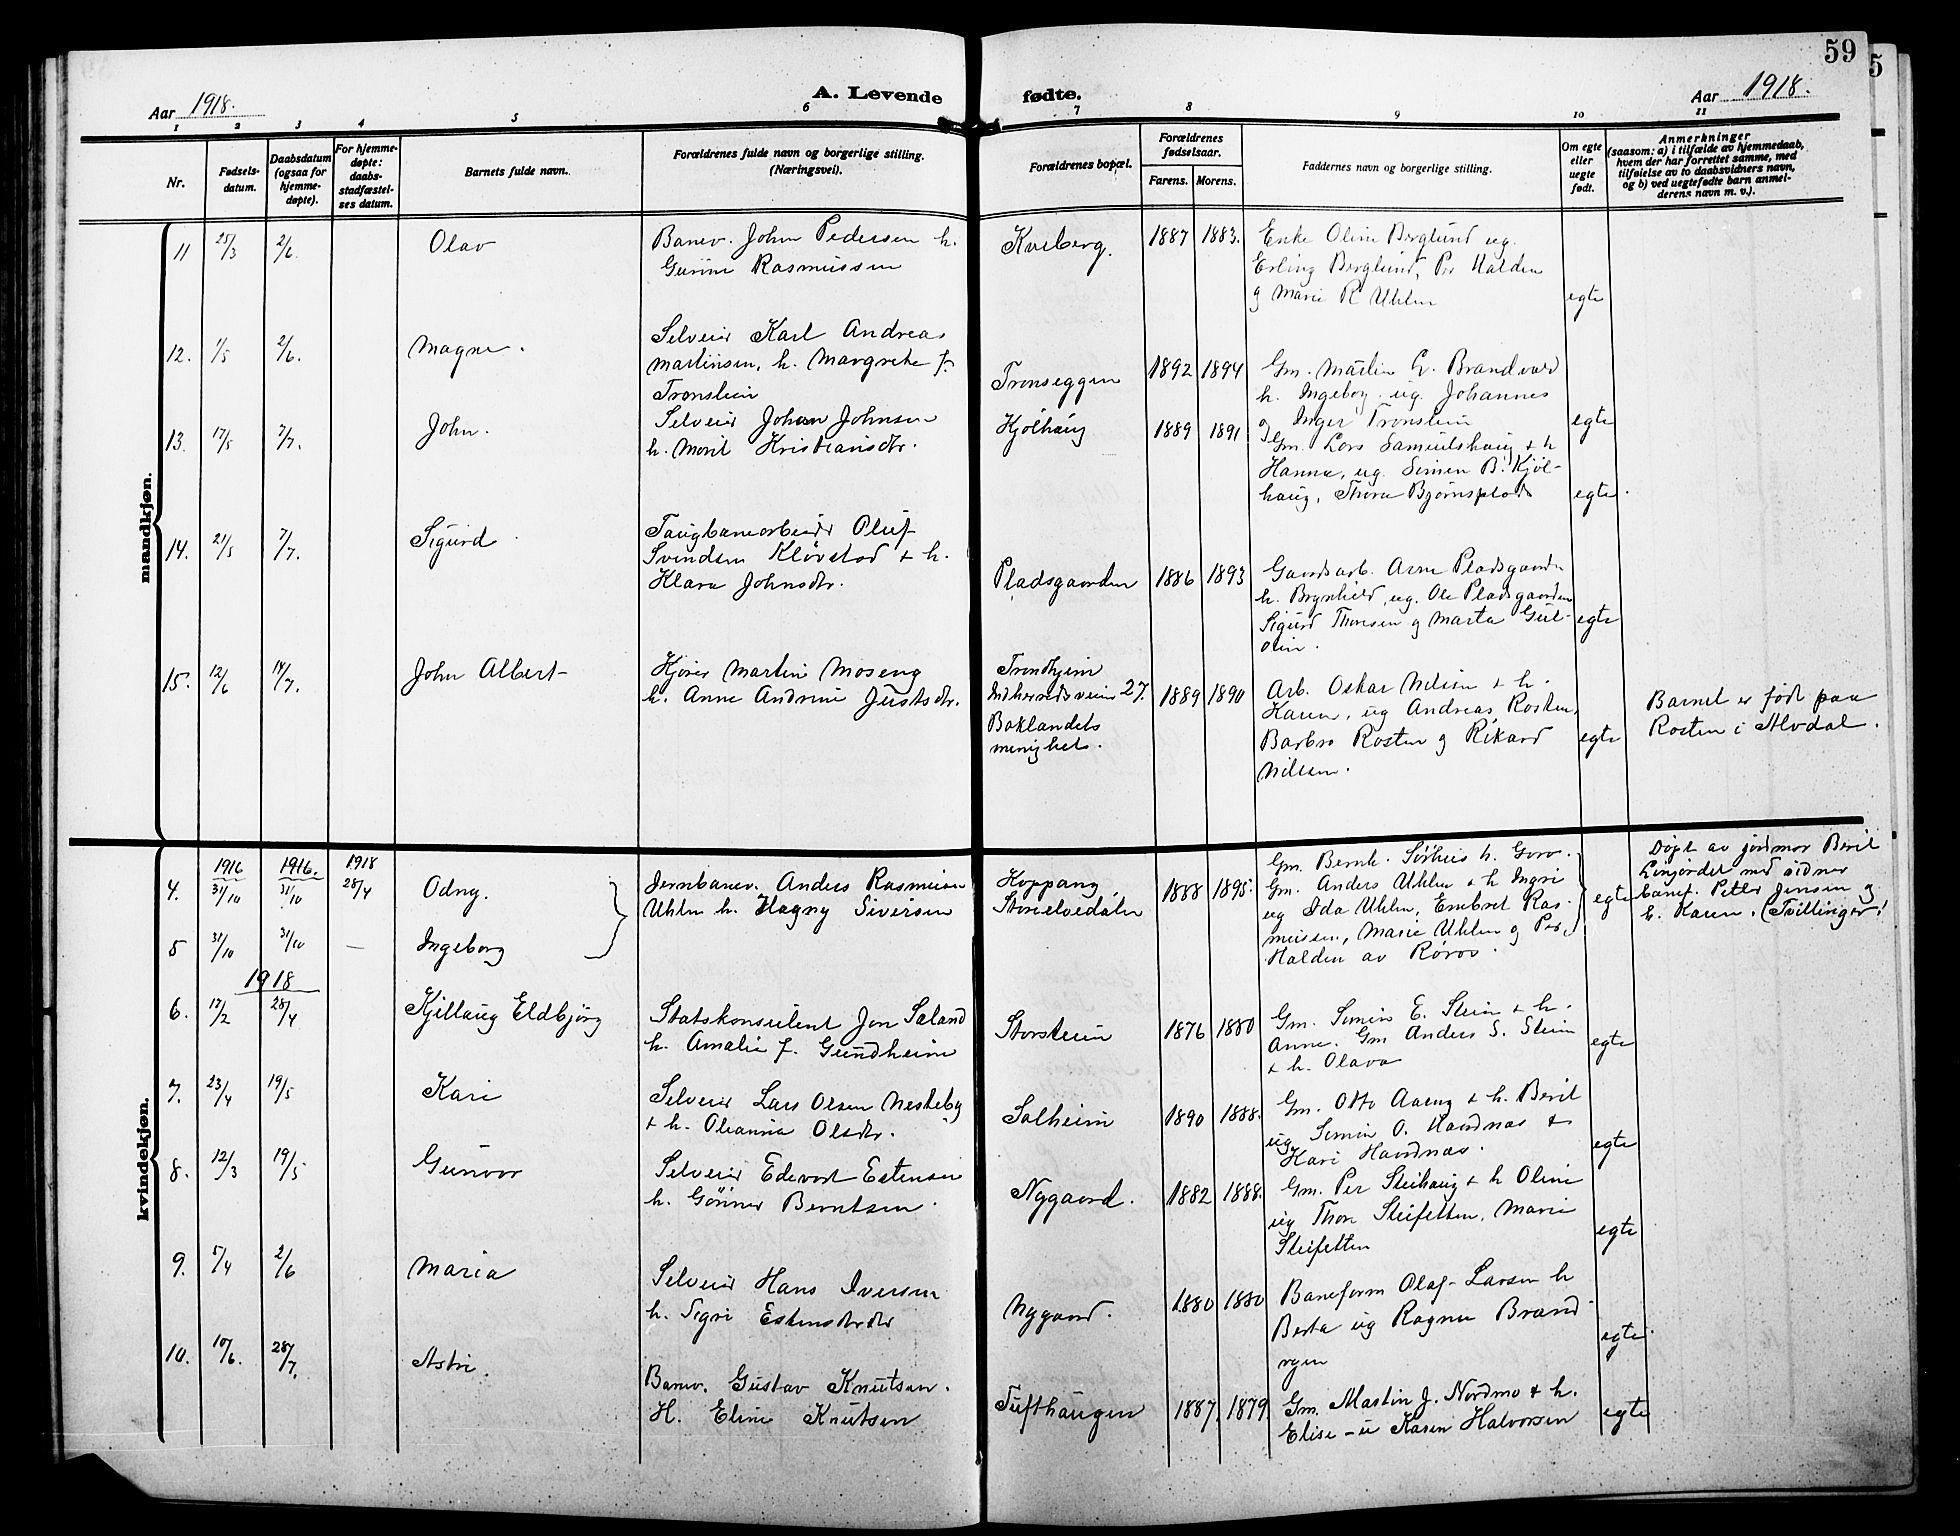 59
5
Aar 1918.
A. Levende fødte.
Aar 1918.
1 2 3 4 5 6 7 8 9 10 11
Nr.
Fødsels-
datum.
Daabsdatum
(ogsaa for
hjemme-
døpte).
For hjemme-
døpte:
daabs-
stadfæstel-
ses datum.
Barnets fulde navn.
Forældrenes fulde navn og borgerlige stilling.
(Næringsvei).
Forældrenes bopæl.
Forældrenes
fødselsaar.
Farens. Morens.
Faddernes navn og borgerlige stilling.
Om egte
eller
uegte
født.
Anmerkninger
(saasom: a) i tilfælde av hjemmedaab,
hvem der har forrettet samme, med
tilføielse av to daabsvidners navn,
og b) ved uegtefødte barn anmel-
derens navn m. v.).
mandkjøn.
11 25/3 2/6. Olav
Banev. John Pedersen h.
Gurine Rasmussen
Kveberg. 1887 1883.
Enke Oline Berglund ug.
Erling Berglund, Per Halden
g Marie R Uhlen egte
12. 1/5 2/6. Magne.
Selveier Karl Andreas
Martinsen, h. Margrete f.
Tronslien
Tronseggen 1892 1894
Gm. Martin L. Brandvold
h. Ingeborg. ug. Johannes
og Inger Tronslien egte
13. 17/5 7/7. John.
Selveier Johan Johnsen
h. Marit Kristiansdtr.
Kjølhaug 1889 1891
Gm. Lars Samuelshaug + h
Hanna, ug. Simen B. Kjøl-
haug, Thora Bjørnsplads egte.
14. 21/5 7/7. Sigurd
Taugbanearbeider Oluf
Svendsen Kløvstad + h.
Klara Johnsdtr.
Pladsgaarden 1886 1893
Gaardsarb. Arne Pladsgaarden
h. Brynhild, ug. Ole Pladsgaarden
Sigurd Thoresen g Marta Gul-
olin. egte
15. 12/6 14/7. John Albert
Kjører Martin Moseng
h. Anne Andrine Justsdtr.
Trondhjem
Indherredsveien 27.
Baklandets
menighet.
1889 1890
Arb. Oskar Nilsen + h.
Karen, ug Andreas Rosten,
Barbro Rosten g Rikard
Nilsen. egte
Barnet er født paa
Rosten i Alvdal.
kvindekjøn.
1916 1916. 1918
4. 31/10 31/10 28/4 Odny.
Jernbanev. Anders Rasmussen
Uhlen h. Magny Siversen
Koppang
Storelvedalen 1888 1895.
Gm. Bernh. Sørhus h. Goro.
Gm. Anders Uhlen + h Ingri
ug Ida Uhlen, Embret Ras-
mussen, Marie Uhlen g Per
Halden av Røros. egte
Døpt av jordmor Berit
Linjordet med vidner
banef. Peter Jensen g
h. Karen. (Tvillinger)
5 31/10 31/10 — Ingeborg
1918
6. 17/2 28/4 Kjellaug Eldbjørg
Statskonsulent Jon Sæland
h. Amalie f. Gundheim
Storsteien 1876 1880
Gm. Simen E. Steien + h.
Anne. Gm Anders S. Steien
+ h. Olava egte
7. 23/4 19/5 Kari
Selveier Lars Olsen Neskeby
+ h. Oleanna Olsdtr.
Solheim 1890 1888.
Gm. Otto Aaeng + h. Berit
ug Simen O. Haardnas +
Kari Haardnas. egte
8. 12/3 19/5 Gunvor
Selveier Edevart Estensen
h. Gunner Berntsen.
Nygaard. 1882 1888.
Gm. Per Steihaug + h Oline
ug Thore Steifetten, Marie
Steifetten egte
9. 5/4 2/6 Maria
Selveier Hans Iversen
h. Sigri Estensdtr
Nygaard. 1880 1880
Baneform Olaf Larsen h
Berta ug Ragna Brænd
vgen egte.
10. 10/6. 28/7. Astri.
Banev. Gustav Knutsen.
H. Eline Knutsen
Tufthaugen 1887 1879
Gm. Martin J. Nordmo + h.
Elise - u Karen Halvorsen egte